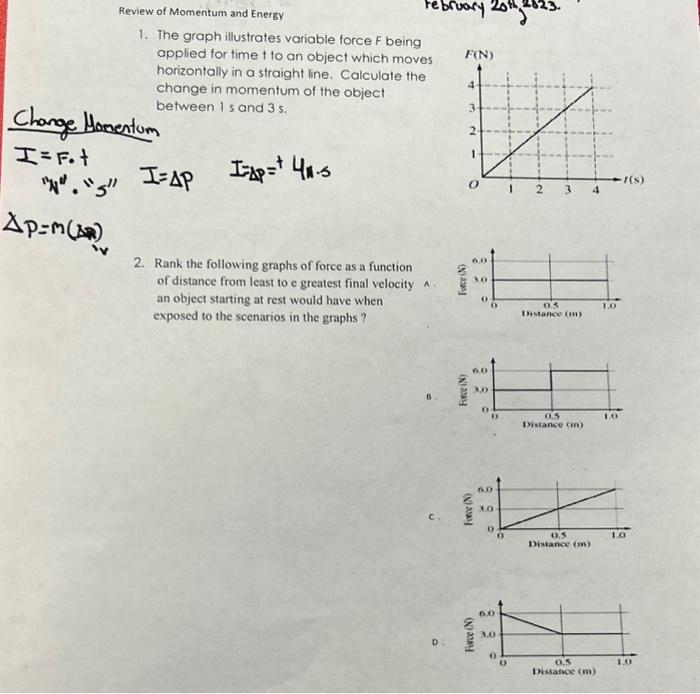 February 20th, 2023.
Review of Momentum and Energy
1. The graph illustrates variable force F being
applied for time t to an object which moves
horizontally in a straight line. Calculate the
change in momentum of the object
between 1 s and 3 s.
F(N)
4
3
2
1
O
1 2 3 4
t(s)
Change Momentum
I = F·t
"N" · "s"
I = Δp
I = Δp = + 4N·s
Δp = m(Δ)
v
2. Rank the following graphs of force as a function
of distance from least to e greatest final velocity
an object starting at rest would have when
exposed to the scenarios in the graphs ?
A.
Force (N)
6.0
3.0
0
0 0.5 1.0
Distance (m)
B.
Force (N)
6.0
3.0
0
0 0.5 1.0
Distance (m)
C.
Force (N)
6.0
3.0
0
0 0.5 1.0
Distance (m)
D.
Force (N)
6.0
3.0
0
0 0.5 1.0
Distance (m)